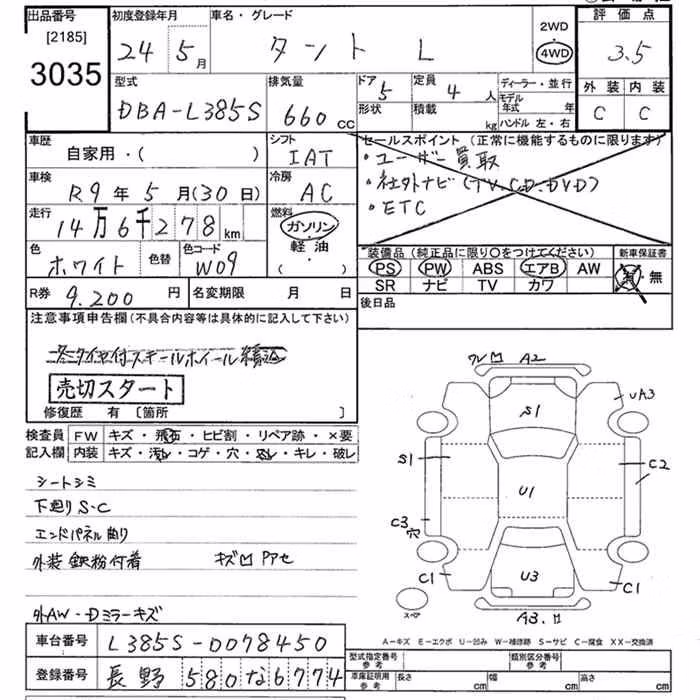 出品番号
[2185]
3035
初度登録年月
24 5月
車名・グレード
タント L
2WD
4WD
評価点
3.5
外装 内装
C C
型式
DBA-L385S
排気量
660 cc
ドア 5
定員 4 人
形状
積載 kg
ディーラー・並行
モデル年式 年
ハンドル 左・右
車歴
自家用・( )
シフト
IAT
車検
R9年5月(30日)
冷房
AC
走行
14万6千278km
燃料
ガソリン
軽油
( )
色
ホワイト
色替
色コード
W09
R券 9,200円
名変期限 月 日
セールスポイント (正常に機能するものに限ります)
・ユーザー買取
・社外ナビ(TV.CD.DVD)
・ETC
装備品 (純正品に限り〇をつけてください)
PS PW ABS エアB AW
SR ナビ TV カワ
新車保証書
有・無
後日品
注意事項申告欄 (不具合内容等は具体的に記入して下さい)
冬タイヤ付スチールホイール積込
売切スタート
修復歴 有 [箇所 ]
検査員記入欄
FW キズ・飛石・ヒビ割・リペア跡・×要
内装 キズ・汚レ・コゲ・穴・スレ・キレ・破レ
シートシミ
下廻りS-C
エンドパネル曲り
外装 鉄粉付着 キズ凹 Pアセ
外AW-Dミラーキズ
車台番号 L385S-0078450
登録番号 長野 580 な 6774
A2
S1
UA3
S1
C2
U1
C3
穴
C1
U3
C1
スペア
A3.凹
A-キズ E-エクボ U-凹み W-補修跡 S-サビ C-腐食 XX-交換済
型式指定番号 参考
類別区分番号 参考
車庫証明用 参考
長さ cm
幅 cm
高さ cm